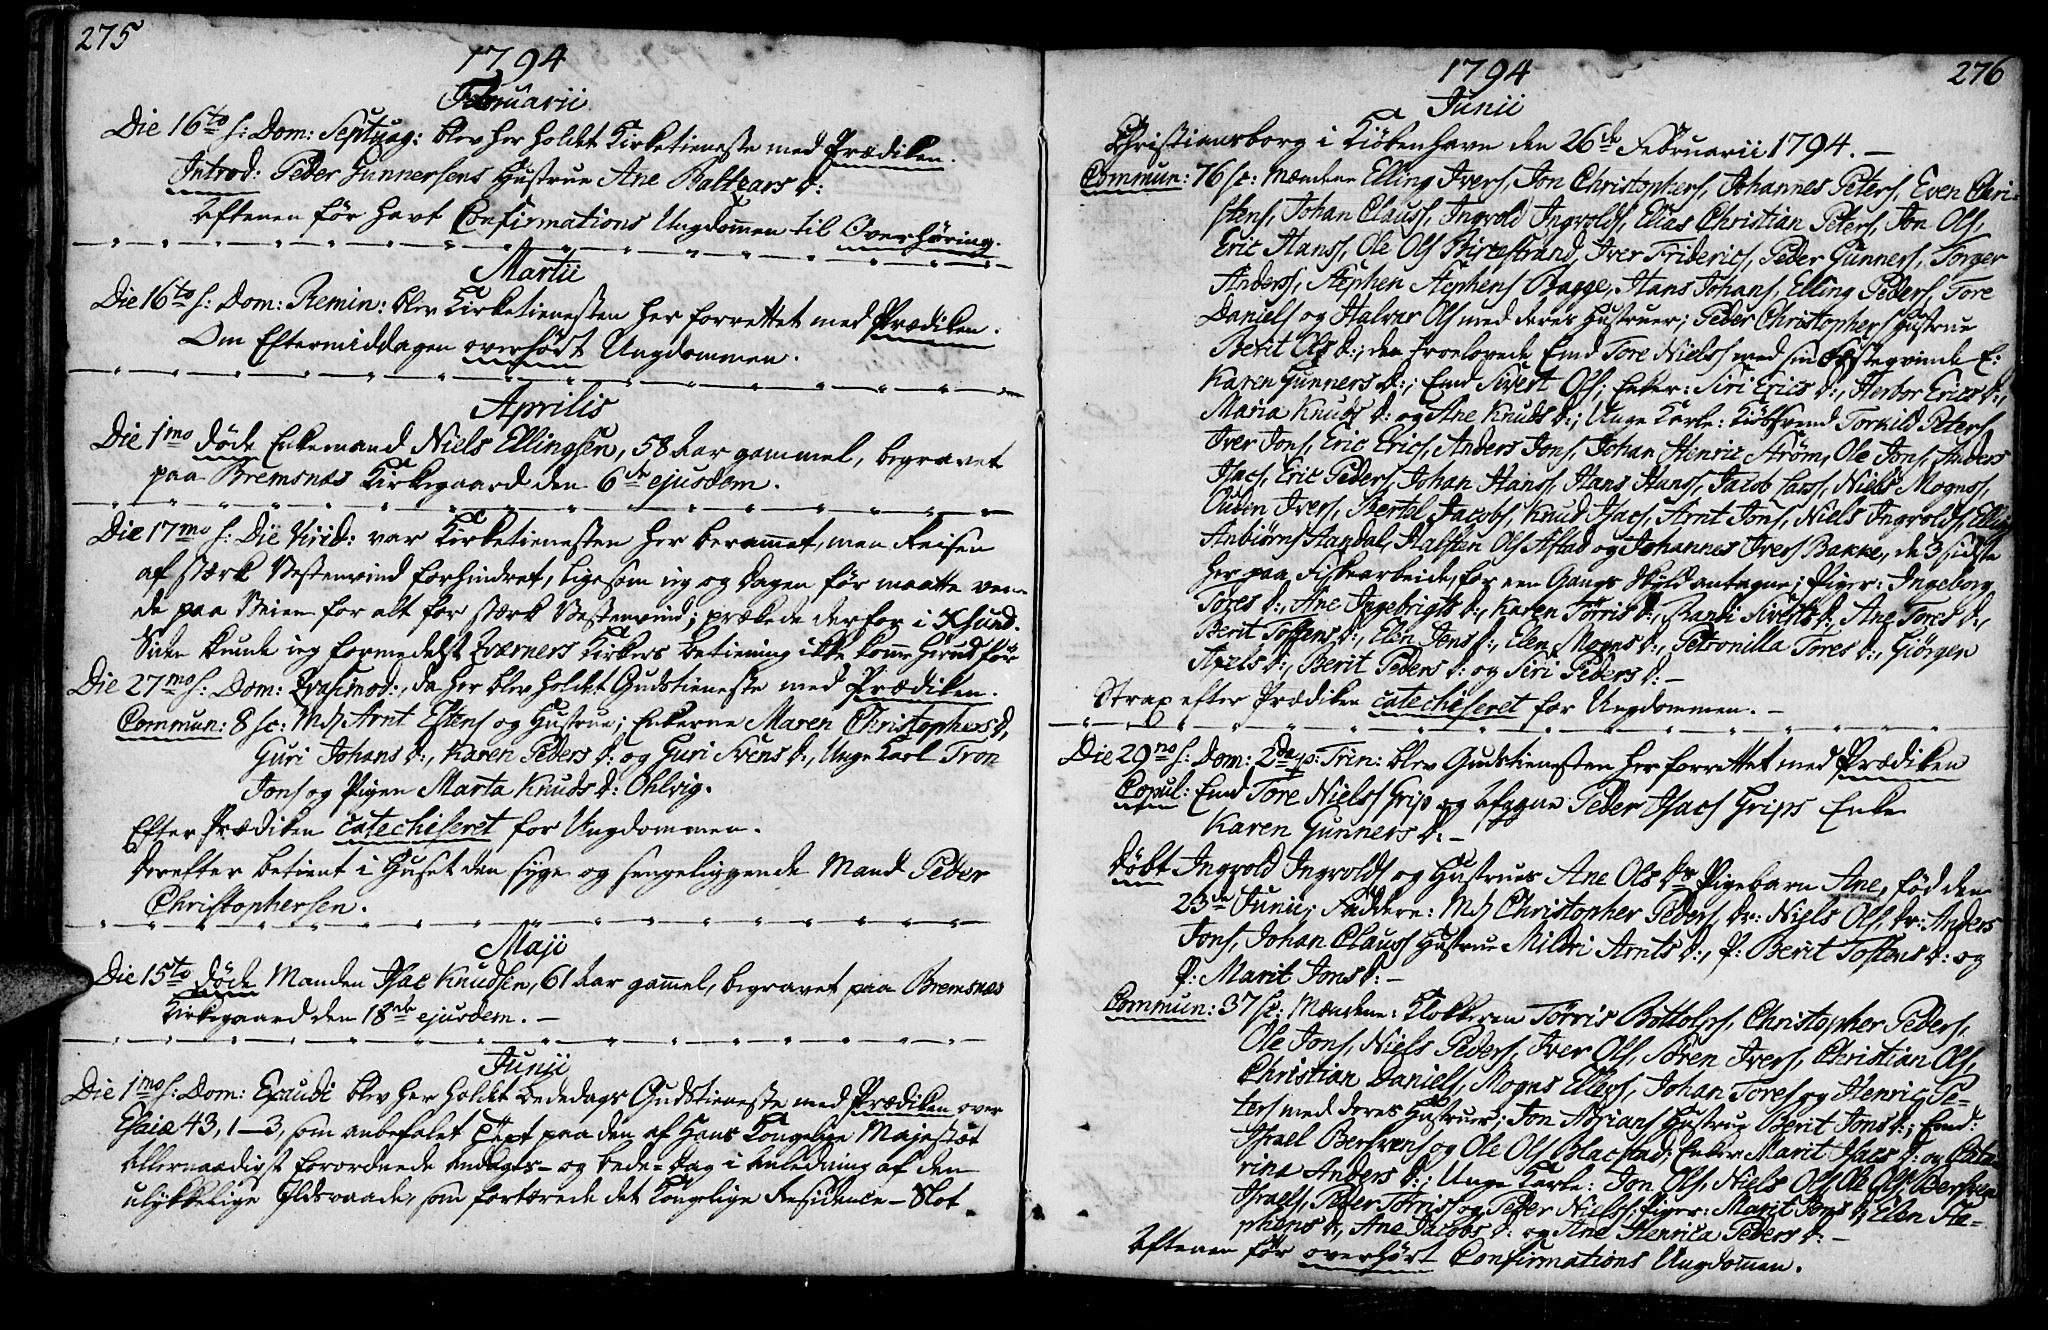 275
1794
Februarii
Die 16to s: Dom: Septuag: blev her holdt Kirketieneste med Prædiken.
Introd: Peder Gunnersens Hustrue Ane Baltzars D:
Aftenen før havt Confirmations Ungdommen til Overhøring.
Martii
Die 16to s: Dom: Remin: blev Kirketienesten her forrettet med Prædiken.
Om Eftermiddagen overhødt Ungdommen.
Aprilis
Die 1mo døde Enkemand Niels Ellingsen, 58 Aar gammel, begravet
paa Bremsnæs Kirkegaard den 6te ejusdem.
Die 17mo s: Die Virid: var Kirketienesten her berammet, men Reisen
af stærk Vestenvind forhindret, ligesom ieg og Dagen før maatte ven-
de paa Veien for alt for stærk Vestenvind; prækede derfor i Xsund.
Siden kunde ieg formedelst Qværners Kirkers betiening ikke komme herud før
Die 27mo s: Dom: Qvasimod:, da her blev holdt Gudstieneste med Prædiken.
Commun: 8 sc: Md Arnt Estens og Hustrue; Enkerne Maren Christophers D,
Guri Johans D:, Karen Peders D: og Guri Svens D:, Unge Karl Tron
Jons og Pigen Marta Knuds D: Ohlvig.
Efter Prædiken catechiseret for Ungdommen.
Derefter betient i Huset den syge og sengeliggende Mand Peder
Christophersen.
Maji
Die 15to døde Manden Isac Knudsen, 61 Aar gamel, begravet paa Bremsnæs
Kirkegaard den 18de ejusdem.
Junii
Die 1mo s: Dom: Exaudi blev her holdt Bededags Gudstieneste med Prædiken over
Esaiæ 43, 1-3, som anbefalet Text paa den af Hans Kongelige Majestæt
Allernaadigst forordnede Andagts- og bede-Dag i Anledning af den
ulykkelige Ildsvaade, som fortærede det Kongelige Residence-Slot
276
1794
Junii
Christiansborg i Kiøbenhavn den 26de Februarii 1794.
Commun: 76 sc: Mændene Elling Ivers, Jon Christophers, Johannes Peters, Even Chri-
stens, Johan Clauss, Ingvold Ingvolds, Elias Christian Peters, Jon Ols,
Eric Hanss, Ole Ols Birkestrand, Iver Friderics, Peder Gunners, Torger
Anders, Stephen Stephens Bagge, Hans Johans, Elling Peders, Tore
Daniels og Halvar Ols med deres Hustruer; Peder Christophers Hustrue
Berit Ols D:; den trolovede Emd Tore Niels med sin Fæsteqvinde E:
Karen Gunners D:; Emd Sivert Ols; Enker: Siri Erics D:, Herbor Erics D:,
Maria Knuds D: og Ane Knuds D:; Unge Karle: Kiøbsvend Torkild Peters,
Iver Jons, Eric Erics, Anders Jons, Johan Henric Strøm, Ole Jons, Anders
Isacs, Eric Peders, Johan Hans, Hans Hans, Jacob Larss, Niels Mogns,
Ouden Ivers, Bertel Jacobs, Knud Isacs, Arnt Jons, Niels Ingvolds, Elling
Anbiørns Aandal, Halsten Ols Aftad og Johannes Ivers Bakke, de 3 sidste
her paa Fiskearbeide, for een Gangs Skyld antagne; Piger: Ingeborg
Tores D:, Ane Ingebrigts D:, Karen Tørris D:, Randi Siverts D:, Ane Tores D:,
Berit Tostens D:, Elen Jens D:, Elen Mogns D:, Petronilla Tores D:, Giørgen
Axels D:, Berit Peders D: og Siri Peders D:
Strax efter Prædiken catechiseret for Ungdommen.
Die 29no s: Dom: 2da p: Trin: blev Gudstienesten her forrettet med Prædiken
Copul: Emd Tore Niels Grip og Afgagne Peder Isacs Grips Enke
Karen Gunners D:
Døbt Ingvold Ingvolds og Hustrues Ane Ols Drs Pigebarn Ane, fød den
23de Junii; Faddere: Md Christopher Peders, Dr: Niels Ols, Dr: Anders
Jons, Johan Clauss Hustrue Mildri Arnts D:, P: Berit Tostens D: og
P: Marit Jons D:
Commun: 37 sc: Mændene: Klokkeren Tørris Bottolps, Christopher Peders,
Ole Jons, Niels Peders, Iver Ols, Søren Ivers, Christian Ols,
Christian Daniels, Mogns Ellings, Johan Tores og Henric Pe-
ters med deres Hustruer; Jon Adrians Hustrue Berit Jons D:; Emd:
Israel Bersvens og Ole Ols Blacstad; Enker: Marit Isacs D: og Cata-
rina Anders D:; Unge Karle: Jon Ols, Niels Ols, Ole Ols, Bersven
Israels, Peter Tørris og Peder Niels; Piger: Marit Jons D:, Elen Ste-
phens D:, Ane Jacobs D: og Ane Henrica Peders D:
Aftenen før overhørt Confirmations Ungdomen.